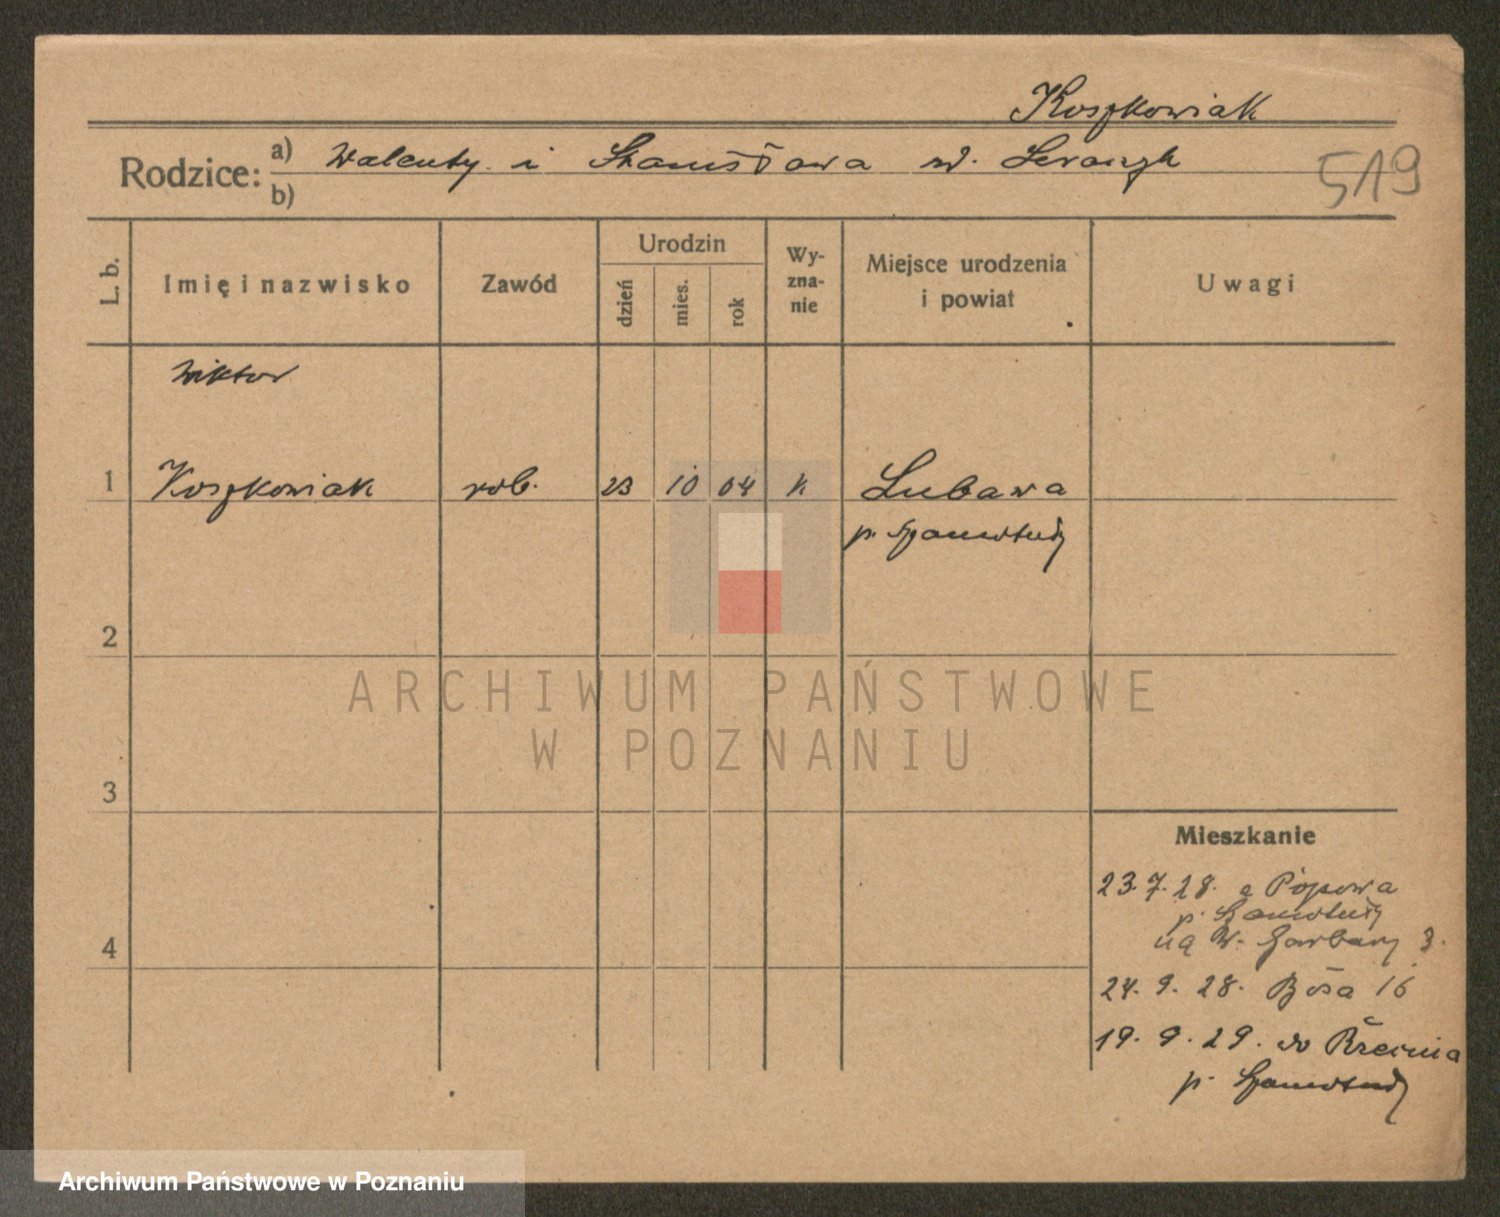 Koszkowiak
Rodzice: a) Walenty i Stanisława
b)
519
L. b.
Imię i nazwisko
Zawód
Urodzin
dzień
mies.
rok
Wy-
zna-
nie
Miejsce urodzenia
i powiat
Uwagi
Wiktor
1 Koszkowiak rob. 23 10 04 k Lubawa
p. Szamotuły
2
3
4
ARCHIWUM PAŃSTWOWE
W POZNANIU
Mieszkanie
23.7.28. z Popowa
p. Szamotuły
na W. Garbary 3.
24. 9. 28. Bósa 16
19. 9. 29. do Rzecina
p. Szamotuły
Archiwum Państwowe w Poznaniu